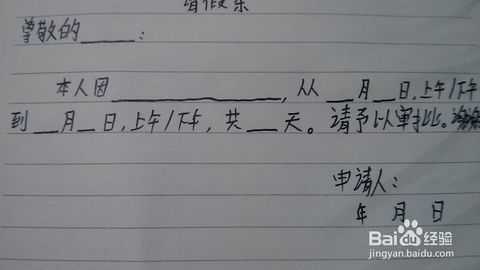 请假条
尊敬的_____:
本人因_______________,从___月__日,上午/下午
到__月__日,上午/下午,共__天。请予以审批。谢谢
申请人:
年 月 日
Baidu 经验
jingyan.baidu.com